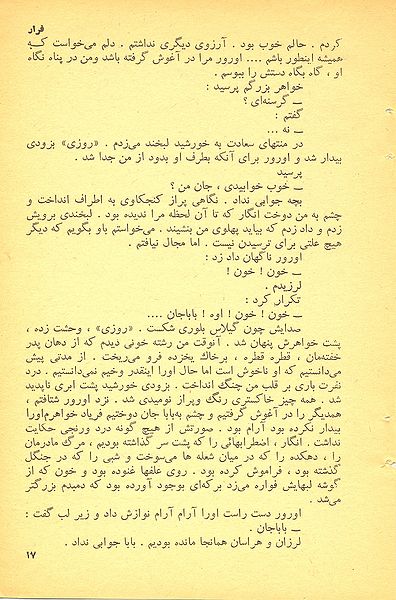 فرار
کردم . حالم خوب بود . آرزوی دیگری نداشتم . دلم می‌خواست کـه
همیشه اینطور باشم .... اورور مرا در آغوش گرفته باشد ومن در پناه نگاه
او ، گاه بگاه دستش را ببوسم .
خواهر بزرگم پرسید :
ــ گرسنه‌ای ؟
گفتم :
ــ نه ...
در منتهای سعادت به خورشید لبخند می‌زدم . «روزی» بزودی
بیدار شد و اورور برای آنکه بطرف او بدود از من جدا شد .
پرسید
ــ خوب خوابیدی ، جان من ؟
بچه جوابی نداد . نگاهی پراز کنجکاوی به اطراف انداخت و
چشم به من دوخت انگار که تا آن لحظه مرا ندیده بود . لبخندی برویش
زدم و داد زدم که بیاید پهلوی من بنشیند . می‌خواستم باو بگویم که دیگر
هیچ علتی برای ترسیدن نیست . اما مجال نیافتم .
اورور ناگهان داد زد :
ــ خون ! خون !
لرزیدم .
تکرار کرد :
ــ خون ! خون ! اوه ! باباجان ....
صدایش چون گیلاس بلوری شکست . «روزی» ، وحشت زده ،
پشت خواهرش پنهان شد . آنوقت من رشته خونی دیدم که از دهان پدر
خفته‌مان ، قطره ، قطره ، برخاك یخزده فرو می‌ریخت . از مدتی پیش
می‌دانستیم که او ناخوش است اما حال اورا اینقدر وخیم نمی‌دانستیم . درد
نفرت باری بر قلب من چنگ انداخت . بزودی خورشید پشت ابری ناپدید
شد . همه چیز خاکستری رنگ وپراز نومیدی شد . نزد اورور شتافتم ،
همدیگر را در آغوش گرفتیم و چشم به‌بابا جان دوختیم فریاد خواهرم‌اورا
بیدار نکرده بود آرام بود . صورتش از هیچ گونه درد ورنجی حکایت
نداشت . انگار ، اضطرابهائی را که پشت سر گذاشته بودیم ، مرگ مادرمان
را ، دهکده را که در میان شعله ها می‌سوخت و شبی را که در جنگل
گذشته بود ، فراموش کرده بود . روی علفها غنوده بود و خون که از
گوشه لبهایش فواره می‌زد برکه‌ای بوجود آورده بود که دمبدم بزرگتر
می‌شد .
اورور دست راست اورا آرام آرام نوازش داد و زیر لب گفت :
ــ باباجان .
لرزان و هراسان همانجا مانده بودیم . بابا جوابی نداد .
۱۷